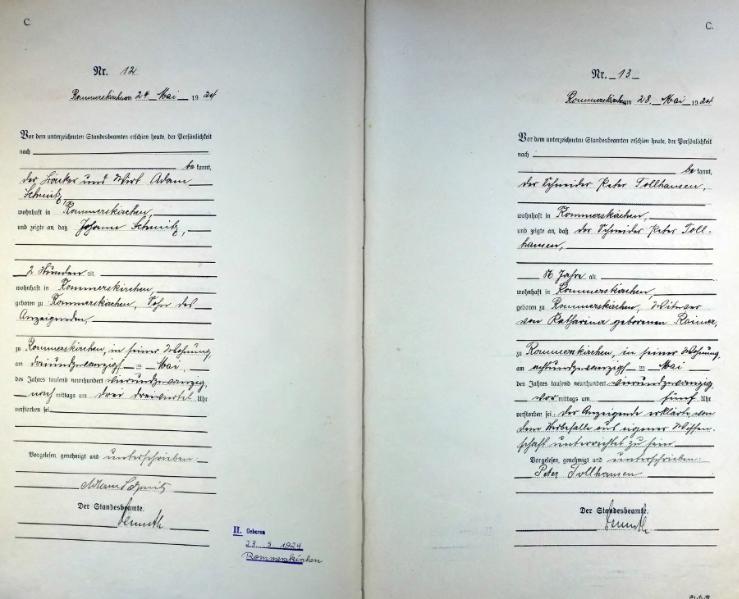 C.
Nr. 12
Rommerskirchen 24. Mai 1924
Vor dem unterzeichneten Standesbeamten erschien heute, der Persönlichkeit
nach
bekannt,
der und Wirt Adam
Schmitz,
wohnhaft in Rommerskirchen,
und zeigte an, daß Johann Schmitz,
2 Stunden alt
wohnhaft in Rommerskirchen,
geboren zu Rommerskirchen, Sohn des
Anzeigenden,
zu Rommerskirchen, in seiner Wohnung,
am dreiundzwanzigsten Mai
des Jahres tausend neunhundert vierundzwanzig
nachmittags um drei dreiviertel Uhr
verstorben sei
Vorgelesen, genehmigt und unterschrieben.
Adam Schmitz
Der Standesbeamte.
II. Geboren
23. 5. 1924
Rommerskirchen
C.
Nr. 13
Rommerskirchen 28. Mai 1924
Vor dem unterzeichneten Standesbeamten erschien heute, der Persönlichkeit
nach
bekannt,
der Schneider Peter Tollhausen,
wohnhaft in Rommerskirchen,
und zeigte an, daß der Schneider Peter Toll-
hausen,
Jahre alt
wohnhaft in Rommerskirchen,
geboren zu Rommerskirchen, Witwer
von Katharina geborenen
zu Rommerskirchen, in seiner Wohnung
am achtundzwanzigsten Mai
des Jahres tausend neunhundert vierundzwanzig
vormittags um fünf Uhr
verstorben sei. Der Anzeigende erklärte von
dem Sterbefalle aus eigener Wissen-
schaft unterrichtet zu sein
Vorgelesen, genehmigt und unterschrieben.
Peter Tollhausen
Der Standesbeamte.